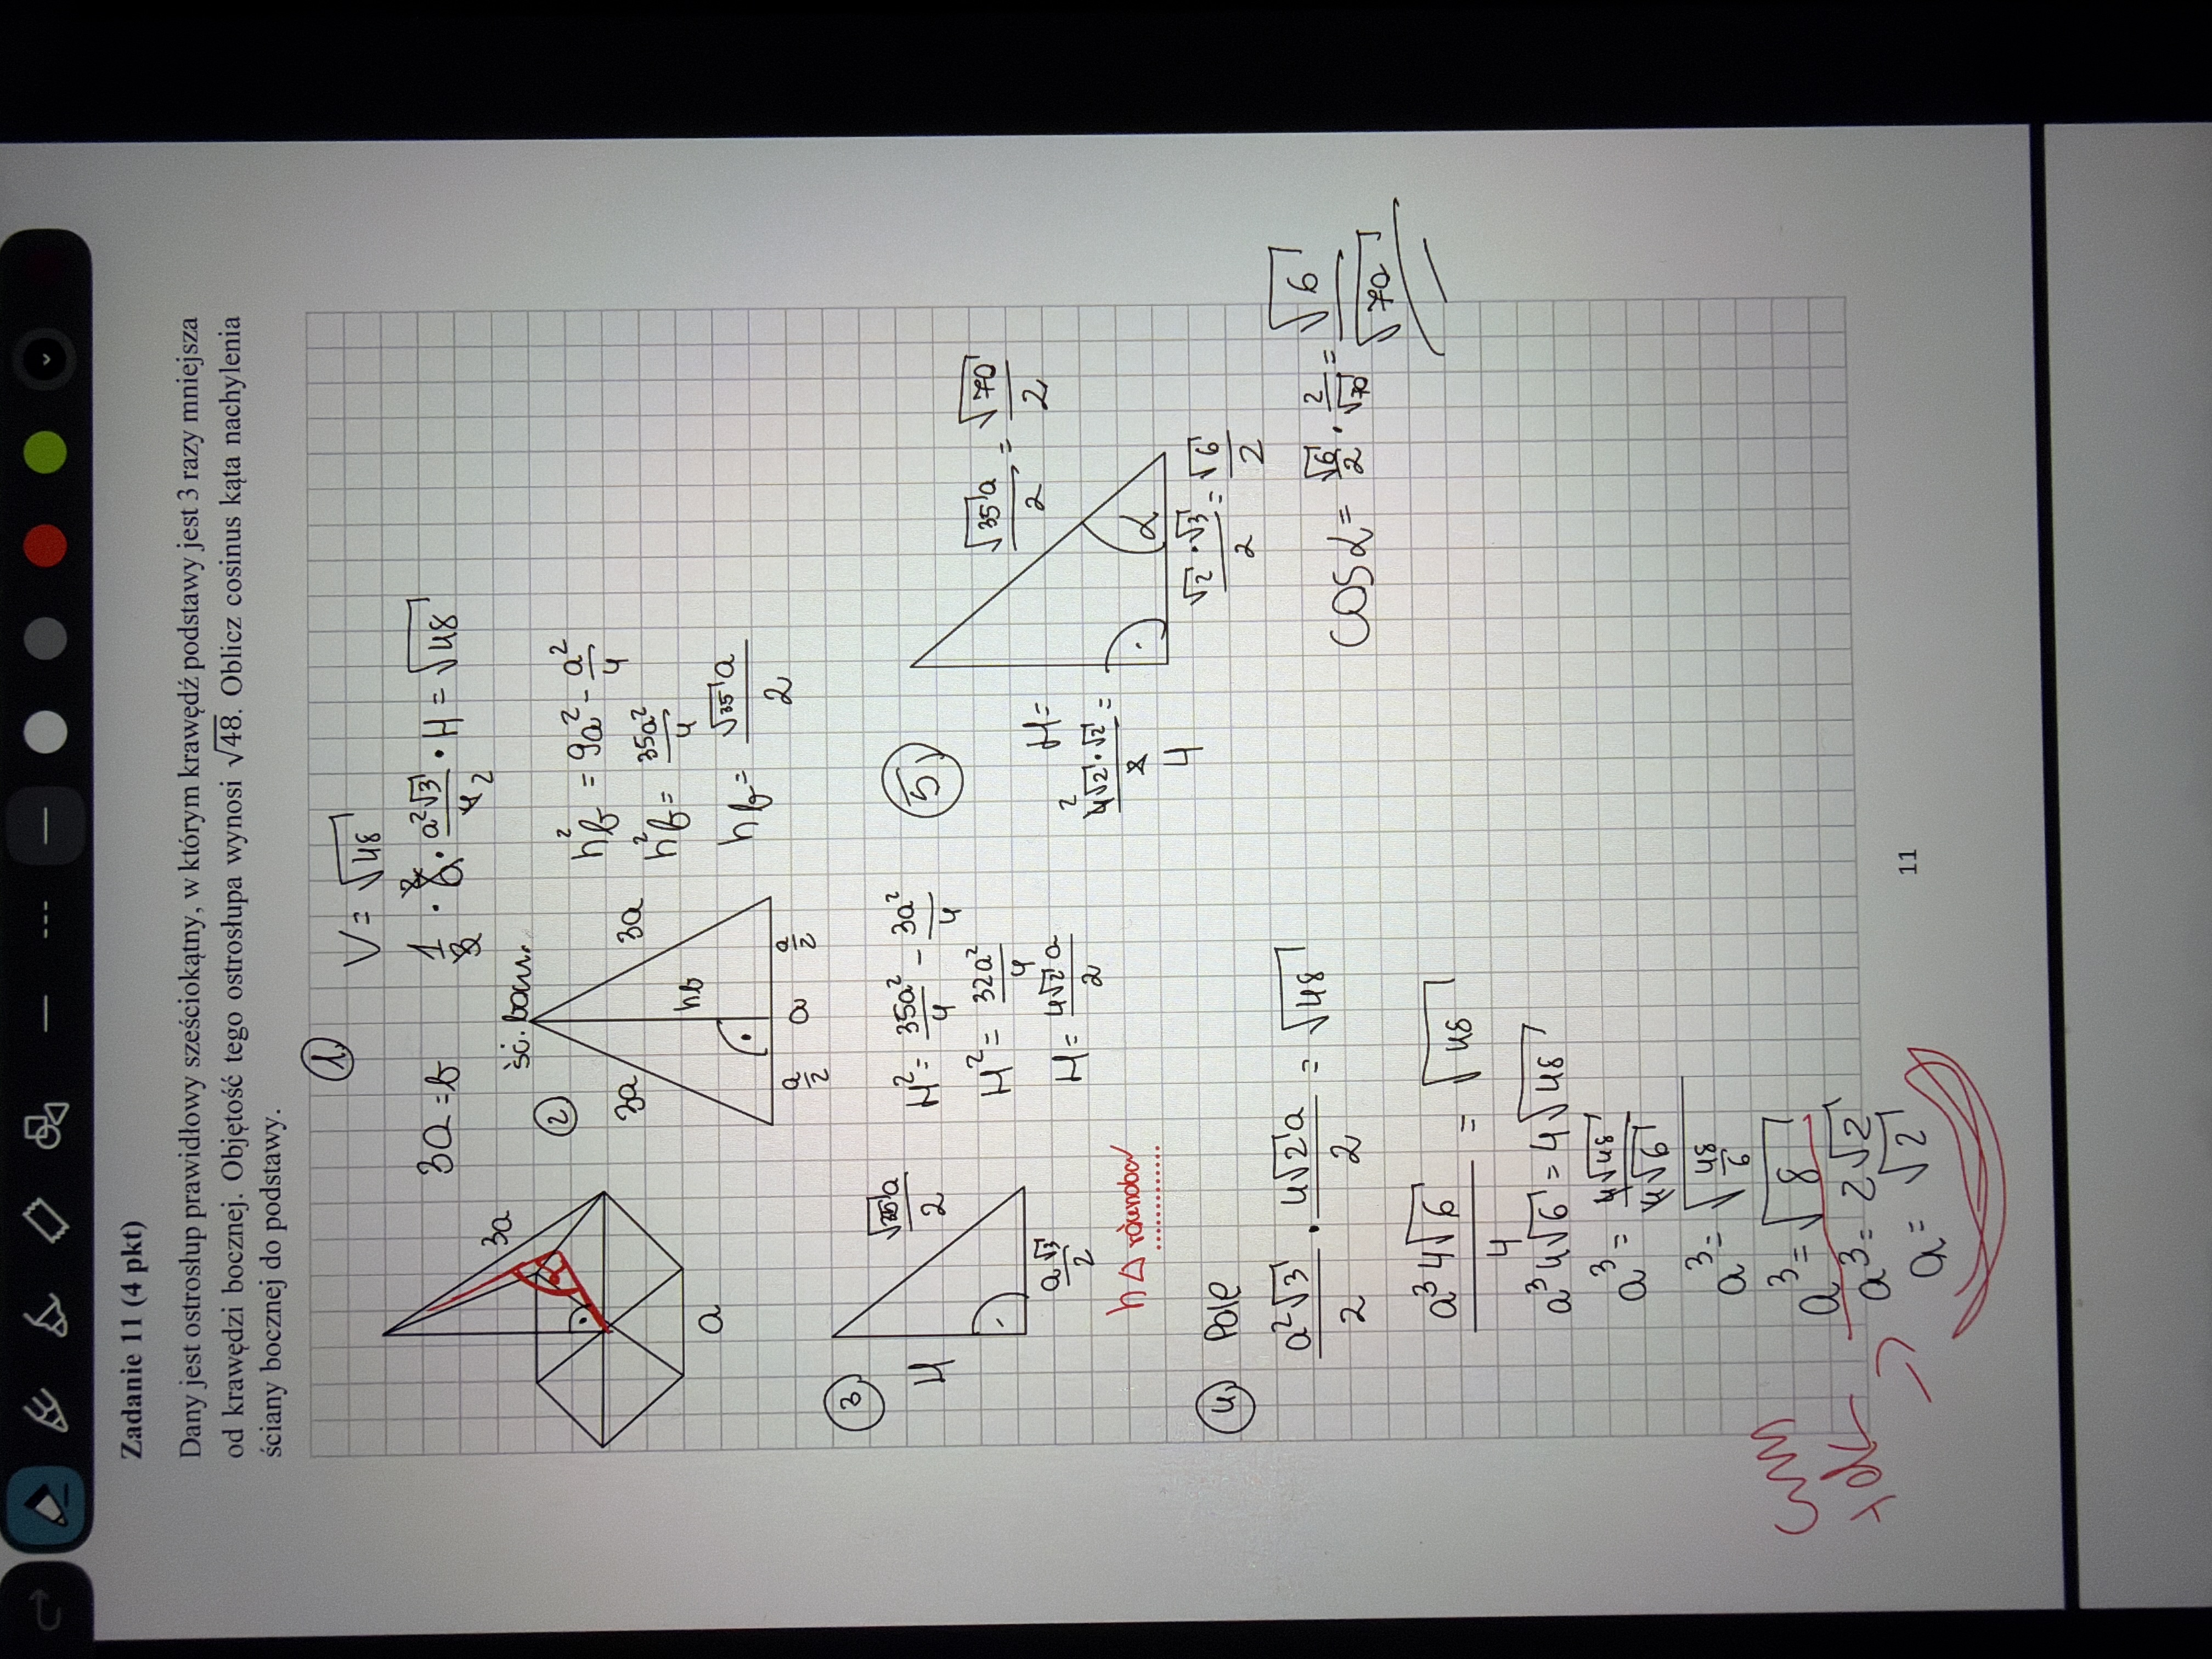 Zadanie 11 (4 pkt)
Dany jest ostrosłup prawidłowy sześciokątny, w którym krawędź podstawy jest 3 razy mniejsza
od krawędzi bocznej. Objętość tego ostrosłupa wynosi √48. Oblicz cosinus kąta nachylenia
ściany bocznej do podstawy.
3a
α
a
3a = b
1
V = √48
1/3 · 6 2 · a²√3/4 2 · H = √48
2
ści. bocz.
3a
3a
hb
a/2
a
a/2
hb² = 9a² - a²/4
hb² = 35a²/4
hb = √35 a/2
3
H
√35 a/2
a√3/2
h△ równobo
H² = 35a²/4 - 3a²/4
H² = 32a²/4
H = 4√2 a/2
4 Pole
a²√3/2 · 4√2 a/2 = √48
a³4√6/4 = √48
a³4√6 = 4√48
a³ = 4√48/4√6
a³ = √48/6
a³ = √8
a³ = 2√2
a = √2
5
H =
2 4√2·√2/2 =
4
√35 a/2 = √70/2
α
√2·√3/2 = √6/2
cos α = √6/2 · 2/√70 = √6/√70
11